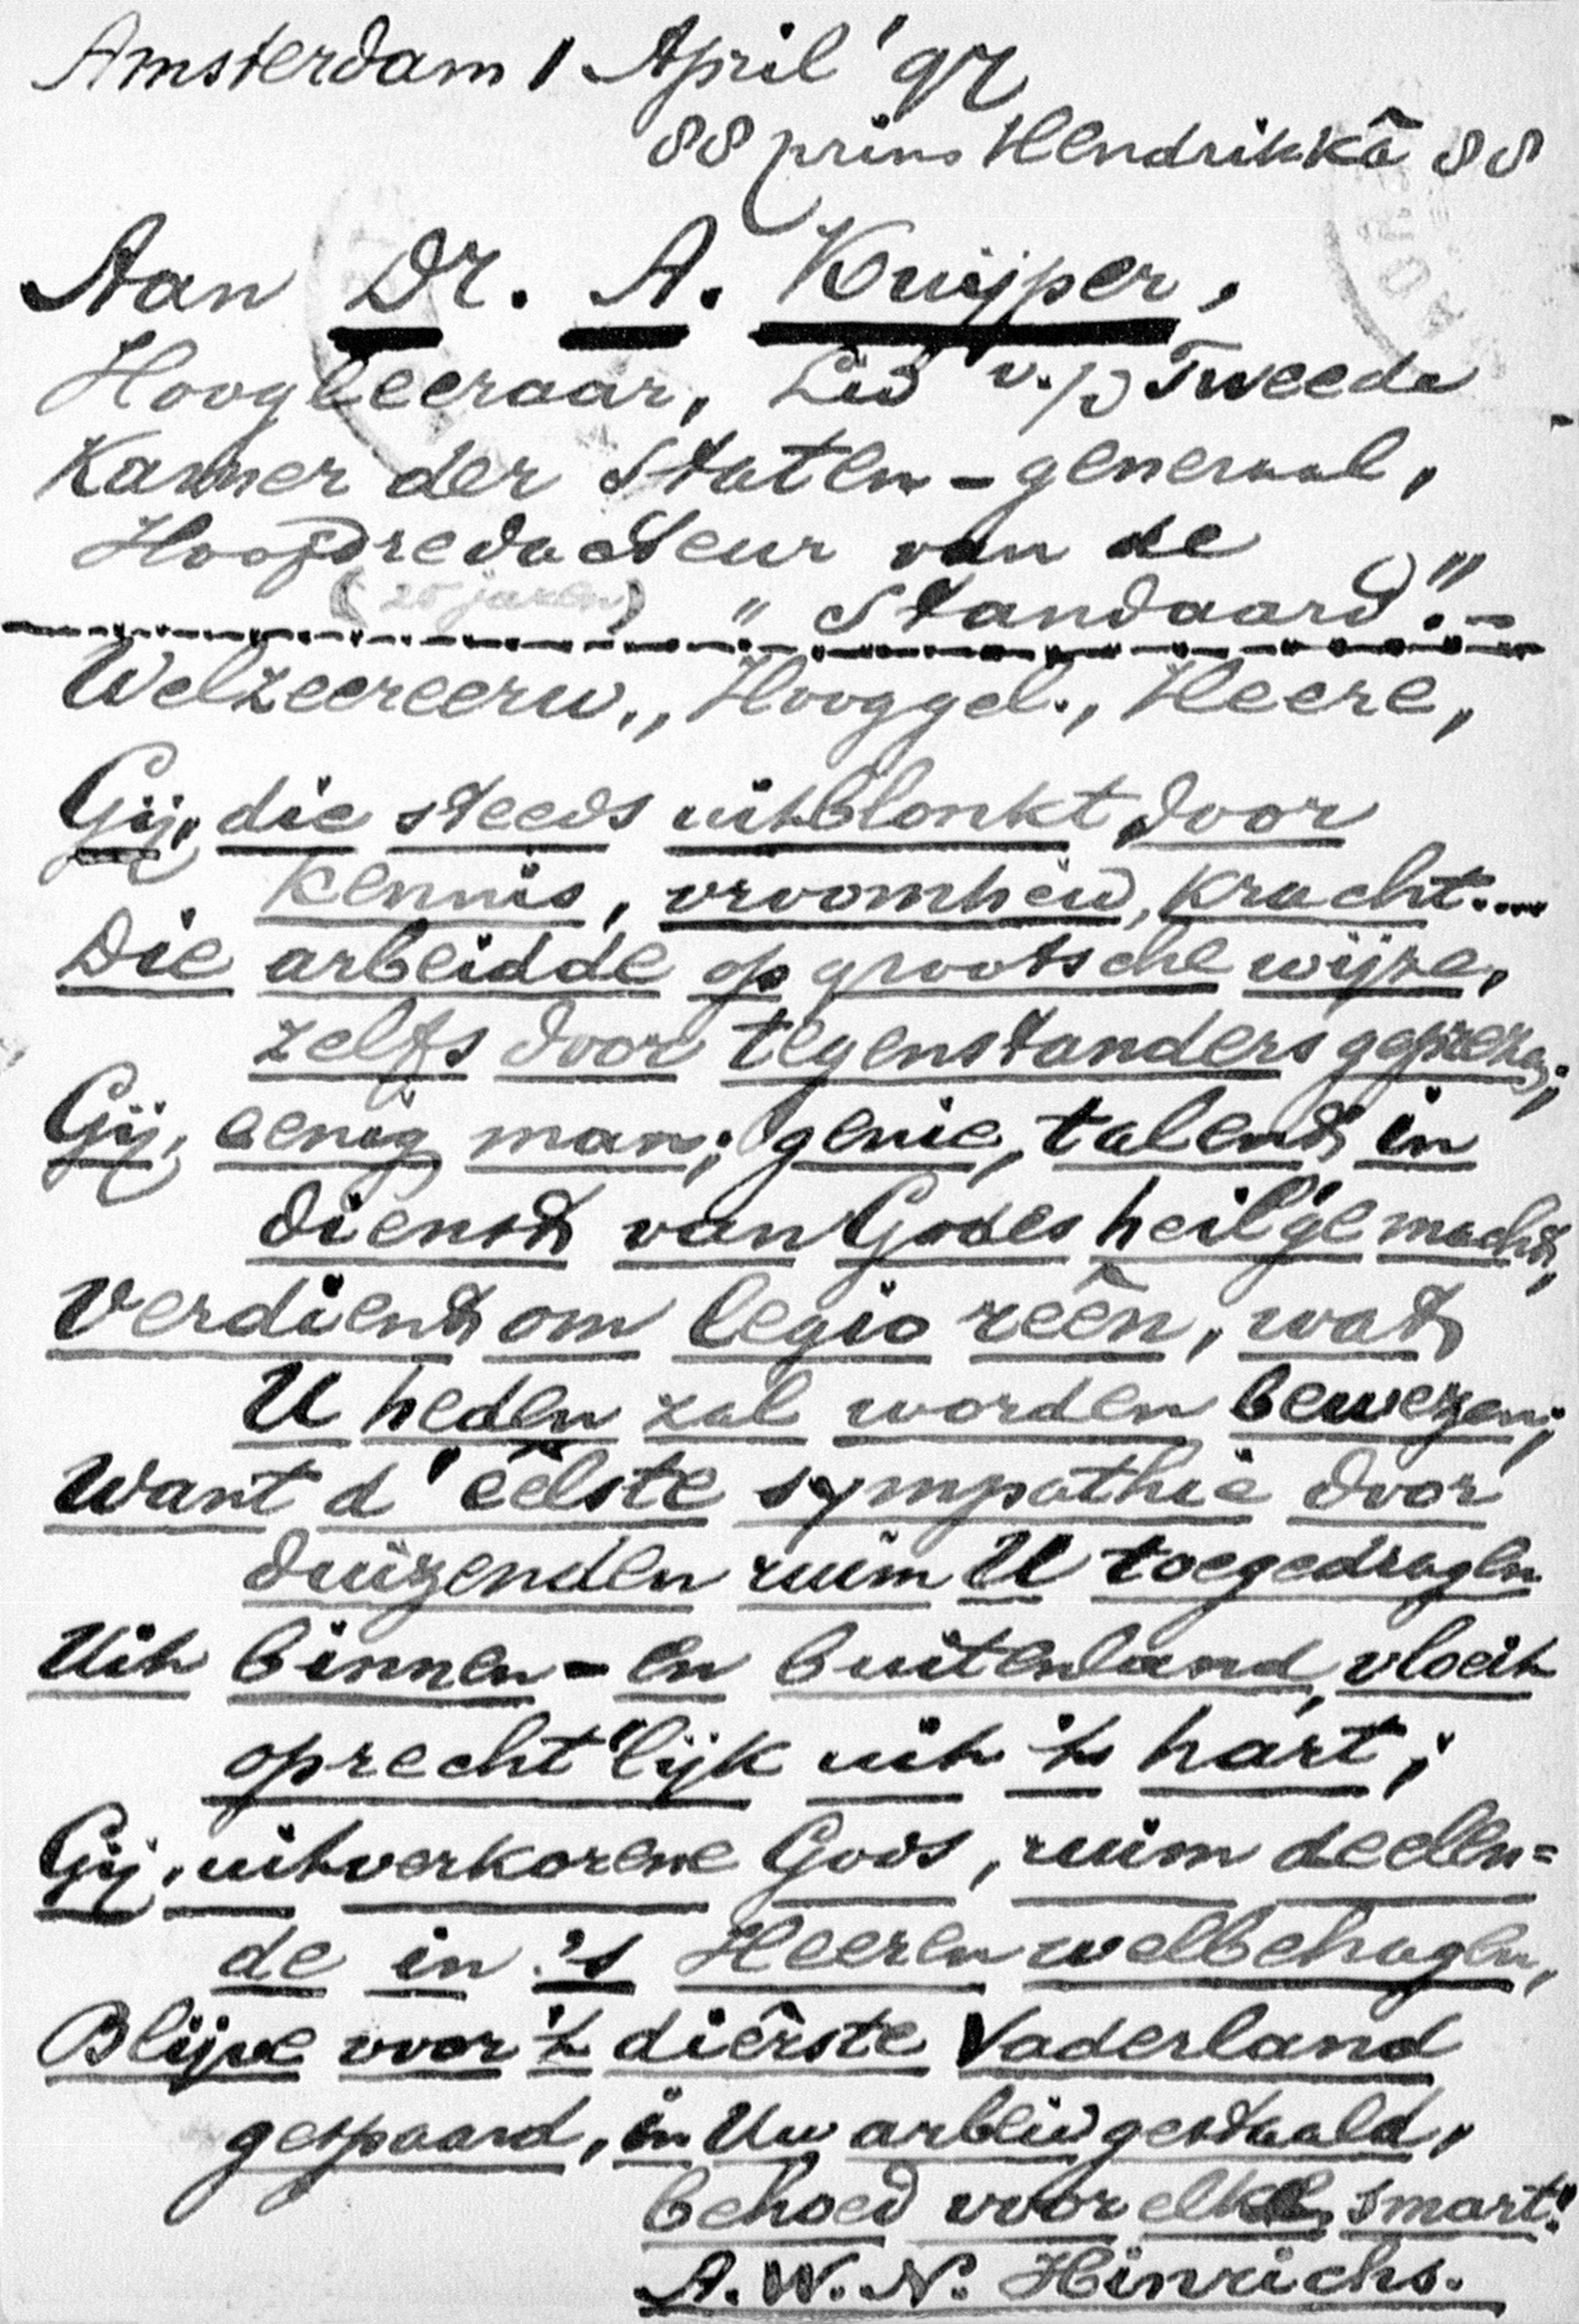 Amsterdam 1 April '97
88 prins Hendrikkâ 88
Aan Dr. A. Kuijper,
Hoogleeraar, Lid v./d Tweede
Kamer der Staten-generaal,
Hoofdredacteur van de
(25 jaren) "Standaard".-
Welzeereerw., Hooggel., Heere,
Gij, die steeds uitblonkt door
kennis, vroomheid, kracht....
Die arbeidde op grootsche wijze,
zelfs door tegenstanders geprezen;
Gij, eenig man; genie, talent in
dienst van Godes heil'ge macht,
Verdient om legio reên, wat
U heden zal worden bewezen;
Want d' eêlste sympathie door
duizenden ruim U toegedragen
Uit binnen- en buitenland, vloeit
oprecht'lijk uit 't hart;
Gij, uitverkorene Gods, ruim deelen=
de in 's Heeren welbehagen,
Blijve voor 't diêrste Vaderland
gespaard, in Uw arbeid gestaald,
behoed voor elke smart!
A. W. N. Hinrichs.